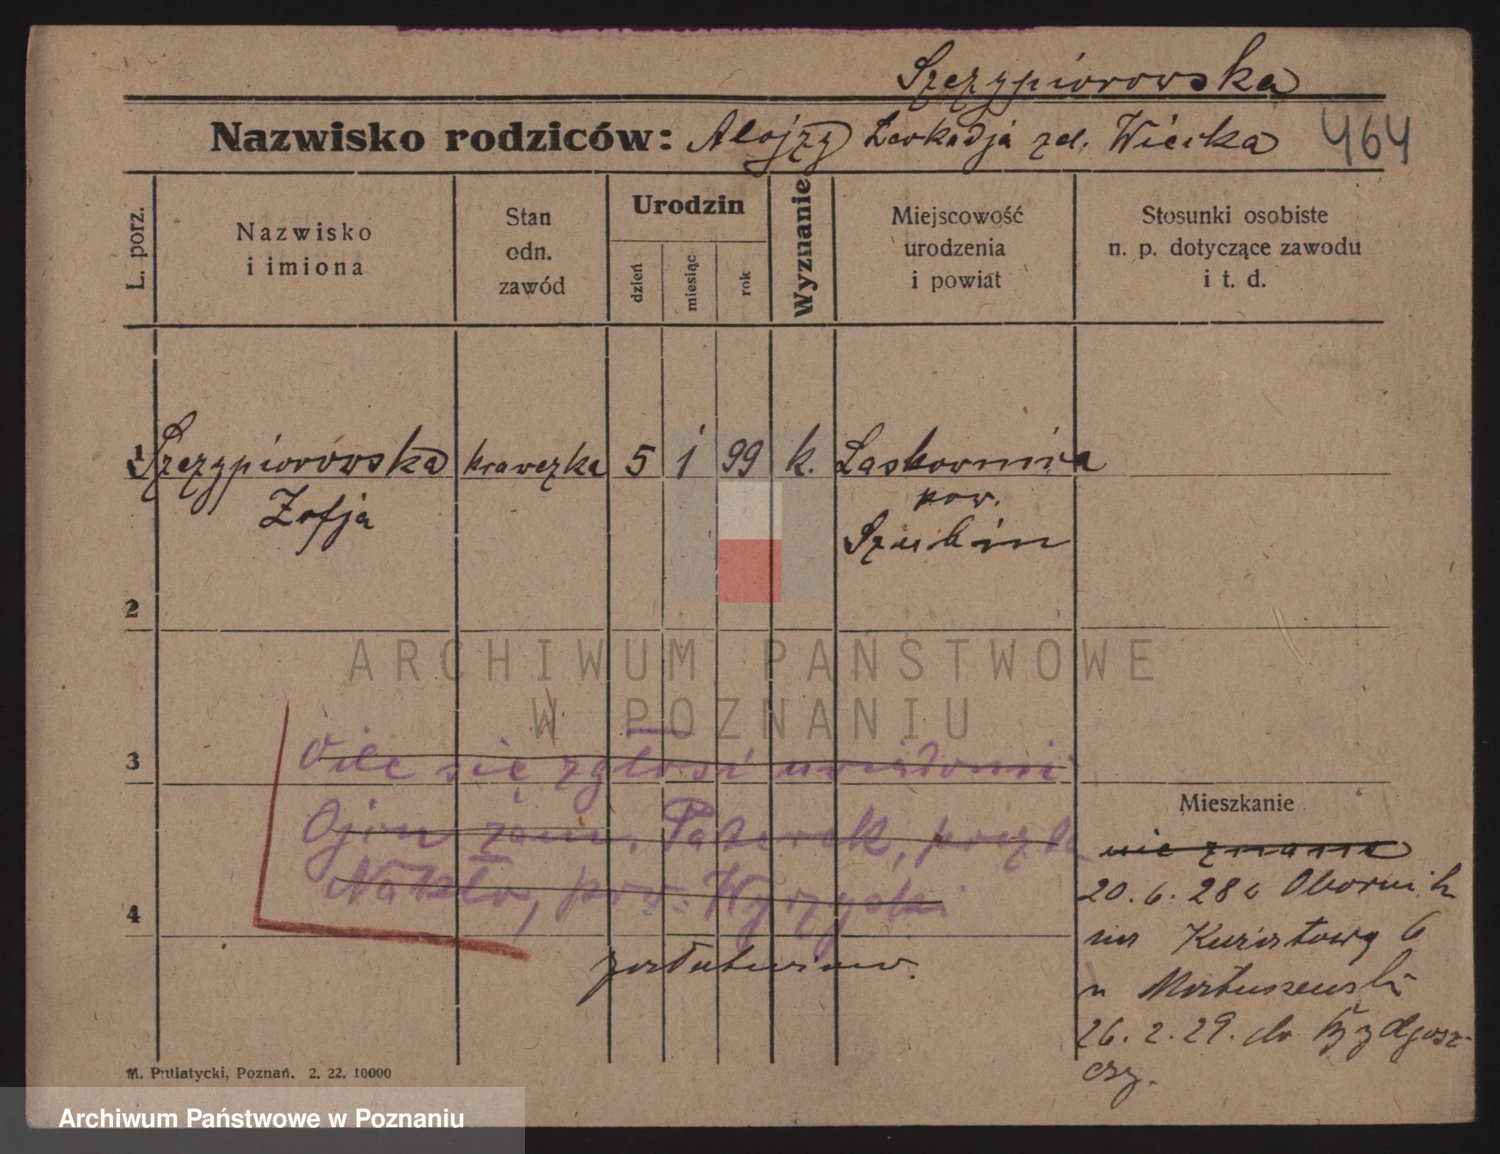 Szczypiorowska
Nazwisko rodziców: Alojzy Leokadja zd. Wiecka 464
L. porz.
Nazwisko i imiona
Stan odn. zawód
Urodzin
dzień
miesiąc
rok
Wyznanie
Miejscowość urodzenia i powiat
Stosunki osobiste n. p. dotyczące zawodu i t. d.
1 Szczypiorowska krawczka 5 1 99 k. Laskownica
Zofja pow.
Szubin
2
ARCHIWUM PAŃSTWOWE
W POZNANIU
3 O ile się zgłosi uwiadomić
Ojon zam. Paterek, poczta
Nakło, pow. Wyrzyski
4
załatwiono.
Mieszkanie
nie znane
20.6.28 Obornik
u Martuszewski
26.2.29. do Bydgosz-
czy.
M. Putiatycki, Poznań. 2. 22. 10000
Archiwum Państwowe w Poznaniu